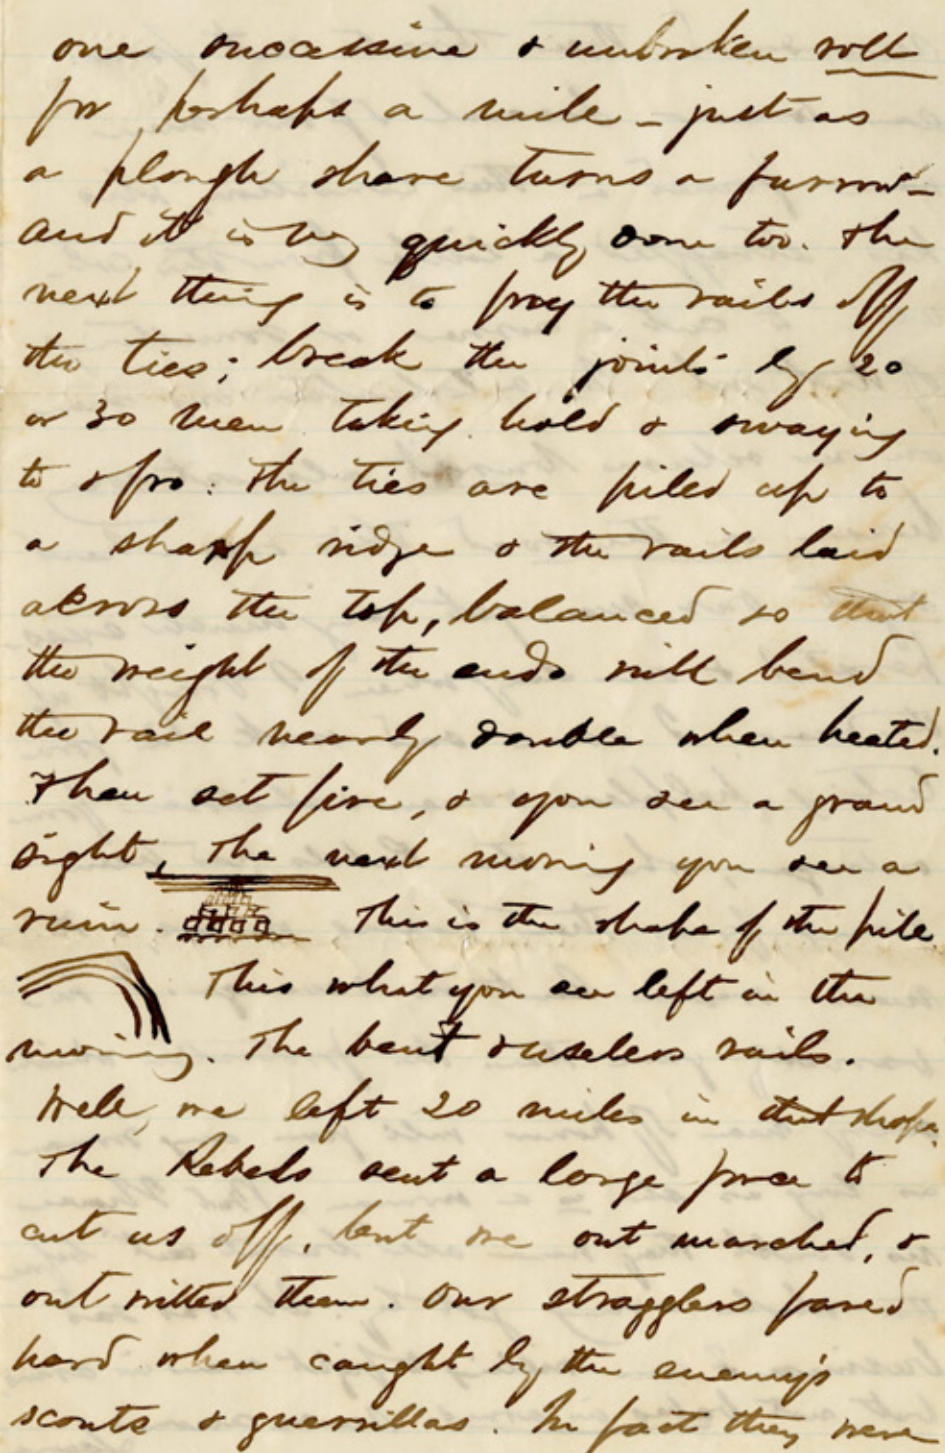 one successive & unbroken roll
for perhaps a mile - just as
a plough share turns a furrow -
and it is very quickly done too. The
next thing is to pry the rails off
the ties; break the joints by 20
or 30 men taking hold & swaying
to & fro: The ties are piled up to
a sharp ridge & the rails laid
across the top, balanced so that
the weight of the ends will bend
the rail nearly double when heated.
Then set fire, & you see a grand
sight, The next morning you see a
ruin. This is the shape of the pile
This what you see left in the
morning. The bent & useless rails.
Well, we left 20 miles in that shape.
The Rebels sent a large force to
cut us off, but we out marched, &
out witted them. Our stragglers fared
hard when caught by the enemy's
scouts & guerrillas. In fact they were